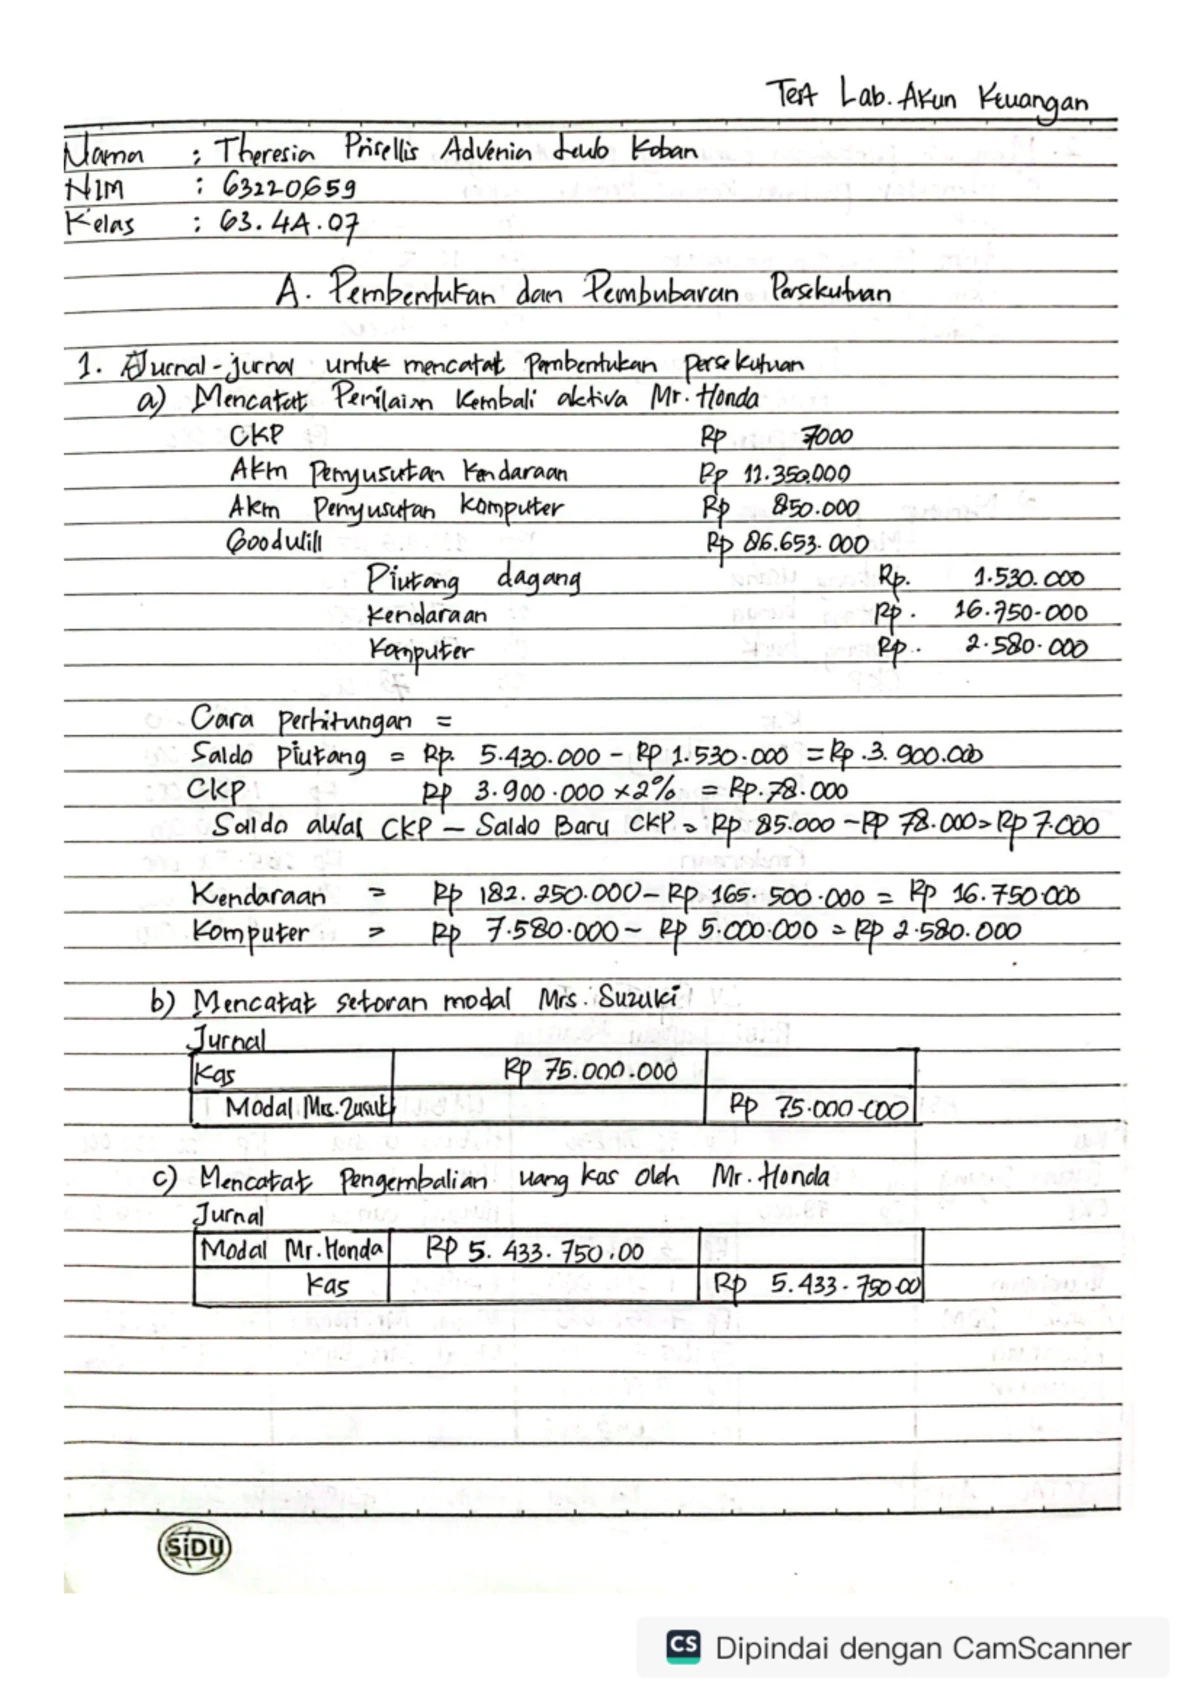 Test Lab. Akun Keuangan
Nama : Theresia Prisellis Advenia Koban
NIM : 63220659
Kelas : 63.4A.07
A. Pembentukan dan Pembubaran Persekutuan
1. Jurnal-jurnal untuk mencatat Pembentukan persekutuan
a) Mencatat Penilaian Kembali aktiva Mr. Honda
CKP Rp 7000
Akm Penyusutan Kendaraan Rp 11.350.000
Akm Penyusutan komputer Rp 850.000
Goodwill Rp 86.653.000
Piutang dagang Rp. 1.530.000
Kendaraan Rp. 16.750.000
Komputer Rp. 2.580.000
Cara perhitungan =
Saldo piutang = Rp. 5.430.000 - Rp 1.530.000 = Rp.3.900.000
CKP Rp 3.900.000 x2% = Rp.78.000
Saldo awal CKP - Saldo Baru CKP = Rp 85.000 - Rp 78.000 = Rp 7.000
Kendaraan = Rp 182.250.000 - Rp 165.500.000 = Rp 16.750.000
Komputer = Rp 7.580.000 - Rp 5.000.000 = Rp 2.580.000
b) Mencatat setoran modal Mrs. Suzuki
Jurnal
Kas Rp 75.000.000
Modal Mrs. Zuzuki Rp 75.000.000
c) Mencatat Pengembalian uang kas oleh Mr. Honda
Jurnal
Modal Mr. Honda Rp 5.433.750.00
Kas Rp 5.433.750.00
SiDU
CS Dipindai dengan CamScanner